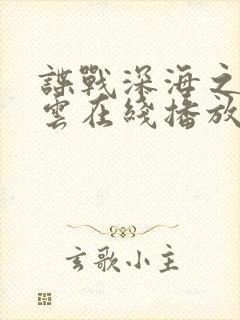 諜戰深海之
雲在綫播放
玄歌小主